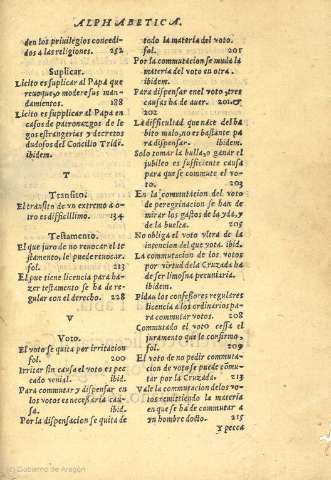 ALPHABETICA.
den los privilegios concedi-
dos a las religiones. 252
Suplicar.
Licito es suplicar al Papa que
revoque, o modere sus man-
damientos. 188
Licito es supplicar al Papa en
casos de patronazgos de le
gos estrangerias y decretos
dudosos del Concilio Tridẽ.
ibidem.
T
Transito.
El transito de vn extremo a o
tro es difficillimo. 134
Testamento.
El que juro de no revocar el te
stamento, le puede revocar.
fol. 213
El que tiene licencia para ha-
zer testamento se ha de re-
gular con el derecho. 228
V
Voto.
El voto se quita por irritacion
fol. 200
Irritar sin causa el voto es pec
cado venial. ibid.
Para commutar y dispensar en
los votos es necessaria cau-
sa. ibid.
Por la dispensacion se quita de
todo la materia del voto.
fol. 201
Por la commutacion se muda la
materia del voto en otra.
ibidem.
Para dispensar en el voto, tres
causas ha de auer. 201. et
202
La difficultad que nace del ha
bito malo, no es bastante pa
ra dispensar. ibidem.
Solo tomar la bulla, o ganar el
jubileo es sufficiente causa
para que se commute el vo-
to. 203
En la commutacion del voto
de peregrinacion se han de
mirar los gastos de la yda, y
de la buelta. 205
No obliga el voto vltra de la
intencion del que vota. ibid.
La commutacion de los votos
por virtud de la Cruzada ha
de ser limosna pecuniaria.
ibidem.
Pidan los confessores regulares
licencia a los ordinarios pa
ra commutar votos. 208
Commutado el voto cessa el
juramento que le confirmo
fol. 209
El voto de no pedir commuta-
cion de voto se puede cõmu-
tar por la Cruzada. 213
Vale la commutacion de los vo
tos remittiendo la materia
en que se ha de commutar a
vn hombre docto. 215
y pecca
(c) Gobierno de Aragón